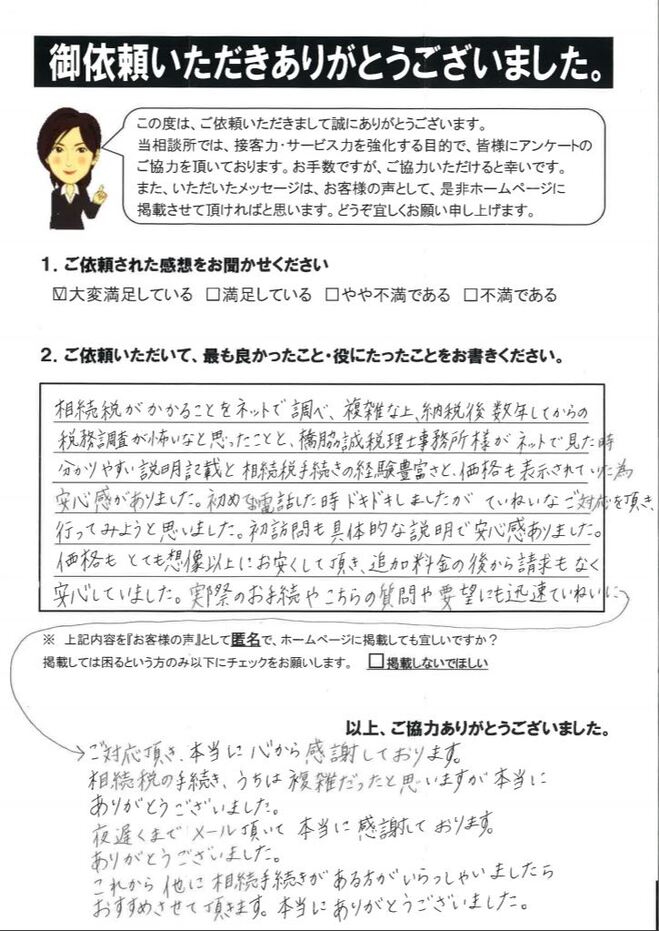 御依頼いただきありがとうございました。
この度は、ご依頼いただきまして誠にありがとうございます。
当相談所では、接客力・サービス力を強化する目的で、皆様にアンケートの
ご協力を頂いております。お手数ですが、ご協力いただけると幸いです。
また、いただいたメッセージは、お客様の声として、是非ホームページに
掲載させて頂ければと思います。どうぞ宜しくお願い申し上げます。
1．ご依頼された感想をお聞かせください
☑大変満足している □満足している □やや不満である □不満である
2．ご依頼いただいて、最も良かったこと・役にたったことをお書きください。
相続税がかかることをネットで調べ、複雑な上、納税後数年してからの
税務調査が怖いなと思ったことと、橋脇誠税理士事務所様がネットで見た時
分かりやすい説明記載と相続税手続きの経験豊富さと、価格も表示されていた為
安心感がありました。初めな電話した時ドキドキしましたがていねいなご対応を頂き、
行ってみようと思いました。初訪問も具体的な説明で安心感ありました。
価格もとても想像以上にお安くして頂き、追加料金の後から請求もなく
安心していました。実際のお手続やこちらの質問や要望にも迅速ていねいに
※ 上記内容を『お客様の声』として匿名で、ホームページに掲載しても宜しいですか？
掲載しては困るという方のみ以下にチェックをお願いします。 □掲載しないでほしい
以上、ご協力ありがとうございました。
→ご対応頂き、本当に心から感謝しております。
相続税の手続き、うちは複雑だったと思いますが本当に
ありがとうございました。
夜遅くまでメール頂いて本当に感謝しております。
ありがとうございました。
これから他に相続手続きがある方がいらっしゃいましたら
おすすめさせて頂きます。本当にありがとうございました。